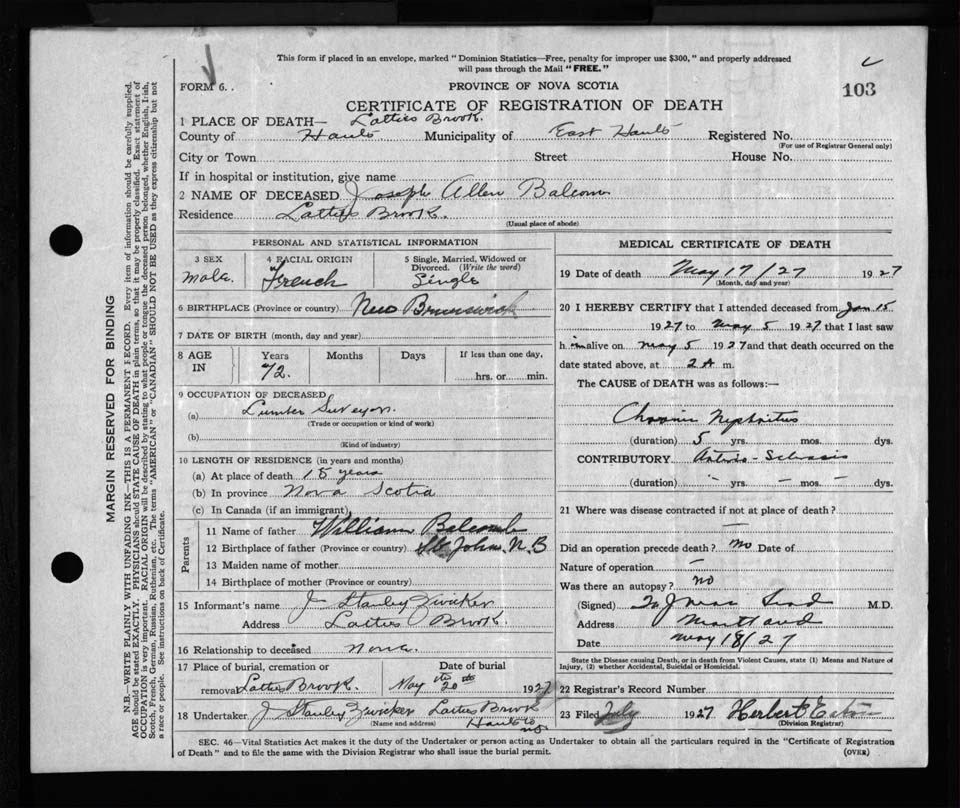 This form if placed in an envelope, marked "Dominion Statistics—Free, penalty for improper use $300," and properly addressed
will pass through the Mail "FREE."
FORM 6.
PROVINCE OF NOVA SCOTIA
103
CERTIFICATE OF REGISTRATION OF DEATH
1 PLACE OF DEATH— Latties Brook.
County of Hants Municipality of East Hants Registered No.
(For use of Registrar General only)
City or Town Street House No.
If in hospital or institution, give name
2 NAME OF DECEASED Joseph Allen Balcom
Residence Latties Brook.
(Usual place of abode)
PERSONAL AND STATISTICAL INFORMATION
3 SEX 4 RACIAL ORIGIN 5 Single, Married, Widowed or
Divorced. (Write the word)
Male French Single
6 BIRTHPLACE (Province or country) New Brunswick
7 DATE OF BIRTH (month, day and year)
8 AGE IN Years Months Days If less than one day,
72. hrs. or min.
9 OCCUPATION OF DECEASED
(a) Lumber Surveyor.
(Trade or occupation or kind of work)
(b)
(Kind of industry)
10 LENGTH OF RESIDENCE (in years and months)
(a) At place of death 18 years
(b) In province Nova Scotia
(c) In Canada (if an immigrant)
Parents
11 Name of father William Balcomb
12 Birthplace of father (Province or country) St John. N.B
13 Maiden name of mother
14 Birthplace of mother (Province or country)
15 Informant's name J Stanley Zwicker
Address Latties Brook.
16 Relationship to deceased None.
17 Place of burial, cremation or Date of burial
removal Latties Brook. May the 20th 1927
18 Undertaker J Stanley Zwicker Latties Brook
(Name and address) Hants Co
NS
MEDICAL CERTIFICATE OF DEATH
19 Date of death May 17/27 1927
(Month, day and year)
20 I HEREBY CERTIFY that I attended deceased from Jan 15
1927 to May 5 1927 that I last saw
him alive on May 5 1927 and that death occurred on the
date stated above, at 2 A m.
The CAUSE of DEATH was as follows:—
Chronic Nephritis
(duration) 5 yrs. mos. dys.
CONTRIBUTORY Arterio-Sclerosis
(duration) - yrs. - mos. - dys.
21 Where was disease contracted if not at place of death?
—
Did an operation precede death? no Date of
Nature of operation —
Was there an autopsy? no
(Signed) M.D.
Address Maitland
Date May 18/27
State the Disease causing Death, or in death from Violent Causes, state (1) Means and Nature of
Injury, (2) whether Accidental, Suicidal or Homicidal.
22 Registrar's Record Number
23 Filed July 1927 Herbert
(Division Registrar)
SEC. 46—Vital Statistics Act makes it the duty of the Undertaker or person acting as Undertaker to obtain all the particulars required in the "Certificate of Registration
of Death" and to file the same with the Division Registrar who shall issue the burial permit. (OVER)
MARGIN RESERVED FOR BINDING
N.B.—WRITE PLAINLY WITH UNFADING INK—THIS IS A PERMANENT RECORD. Every item of information should be carefully supplied.
AGE should be stated EXACTLY. PHYSICIANS should STATE CAUSE OF DEATH in plain terms, so that it may be properly classified. Exact statement of
OCCUPATION is very important. RACIAL ORIGIN will be described by stating to what people or tongue the deceased person belonged, whether English, Irish,
Scotch, French, German, Russian, Ruthenian, etc. The terms "AMERICAN" or "CANADIAN" SHOULD NOT BE USED as they express citizenship but not
a race or people. See instructions on back of Certificate.